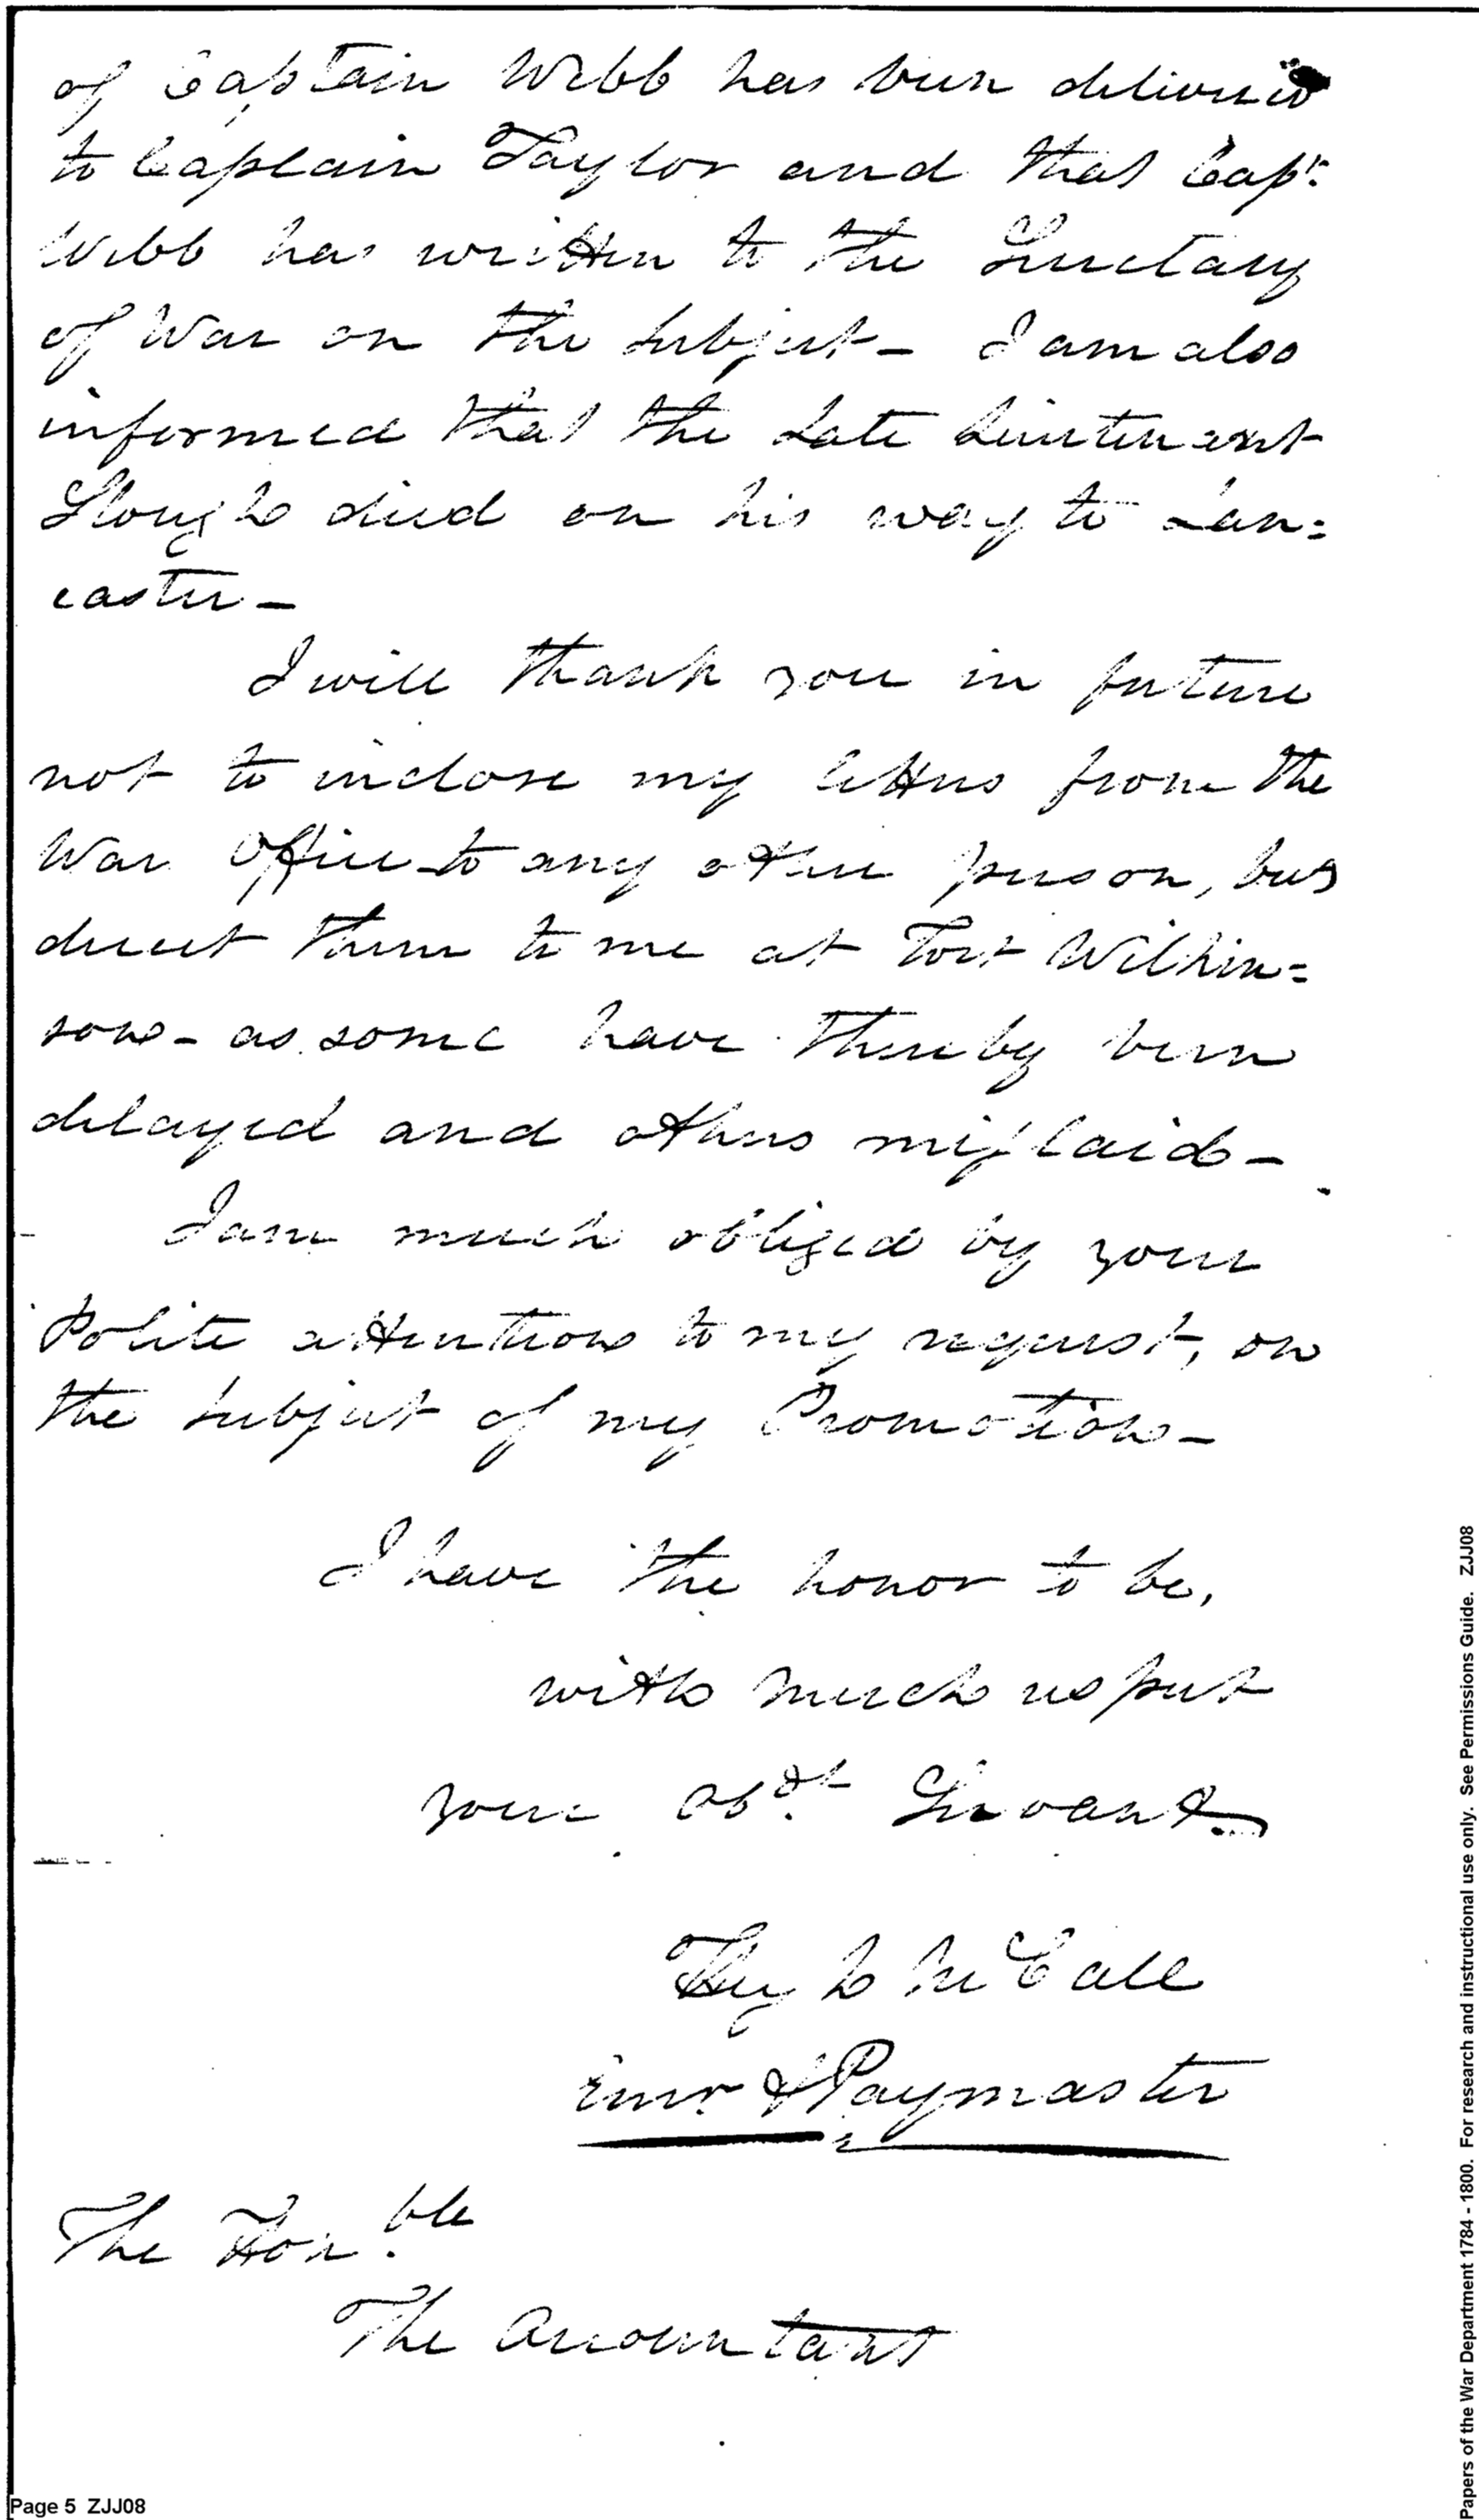 of Captain Webb has been delivered
to Captain Taylor and that Capt.
Webb has written to the Secretary
of War on the Subject – I am also
informed that the Late Lieutenant
Slough died on his way to Lan=
caster –
I will thank you in future
not to inclose my letters from the
War Office to any other person, but
direct them to me at Fort Wilkin=
son – as some have thereby been
delayed and others misslaid –
I am much obliged by your
Polite attention to my request, on
the Subject of my Promotion –
I have the honor to be,
with much respect
your obdt. Servant
Hugh McCall
& Paymaster
The Honble
The Accountant
Page 5 ZJJ08
Papers of the War Department 1784 - 1800. For research and instructional use only. See Permissions Guide. ZJJ08